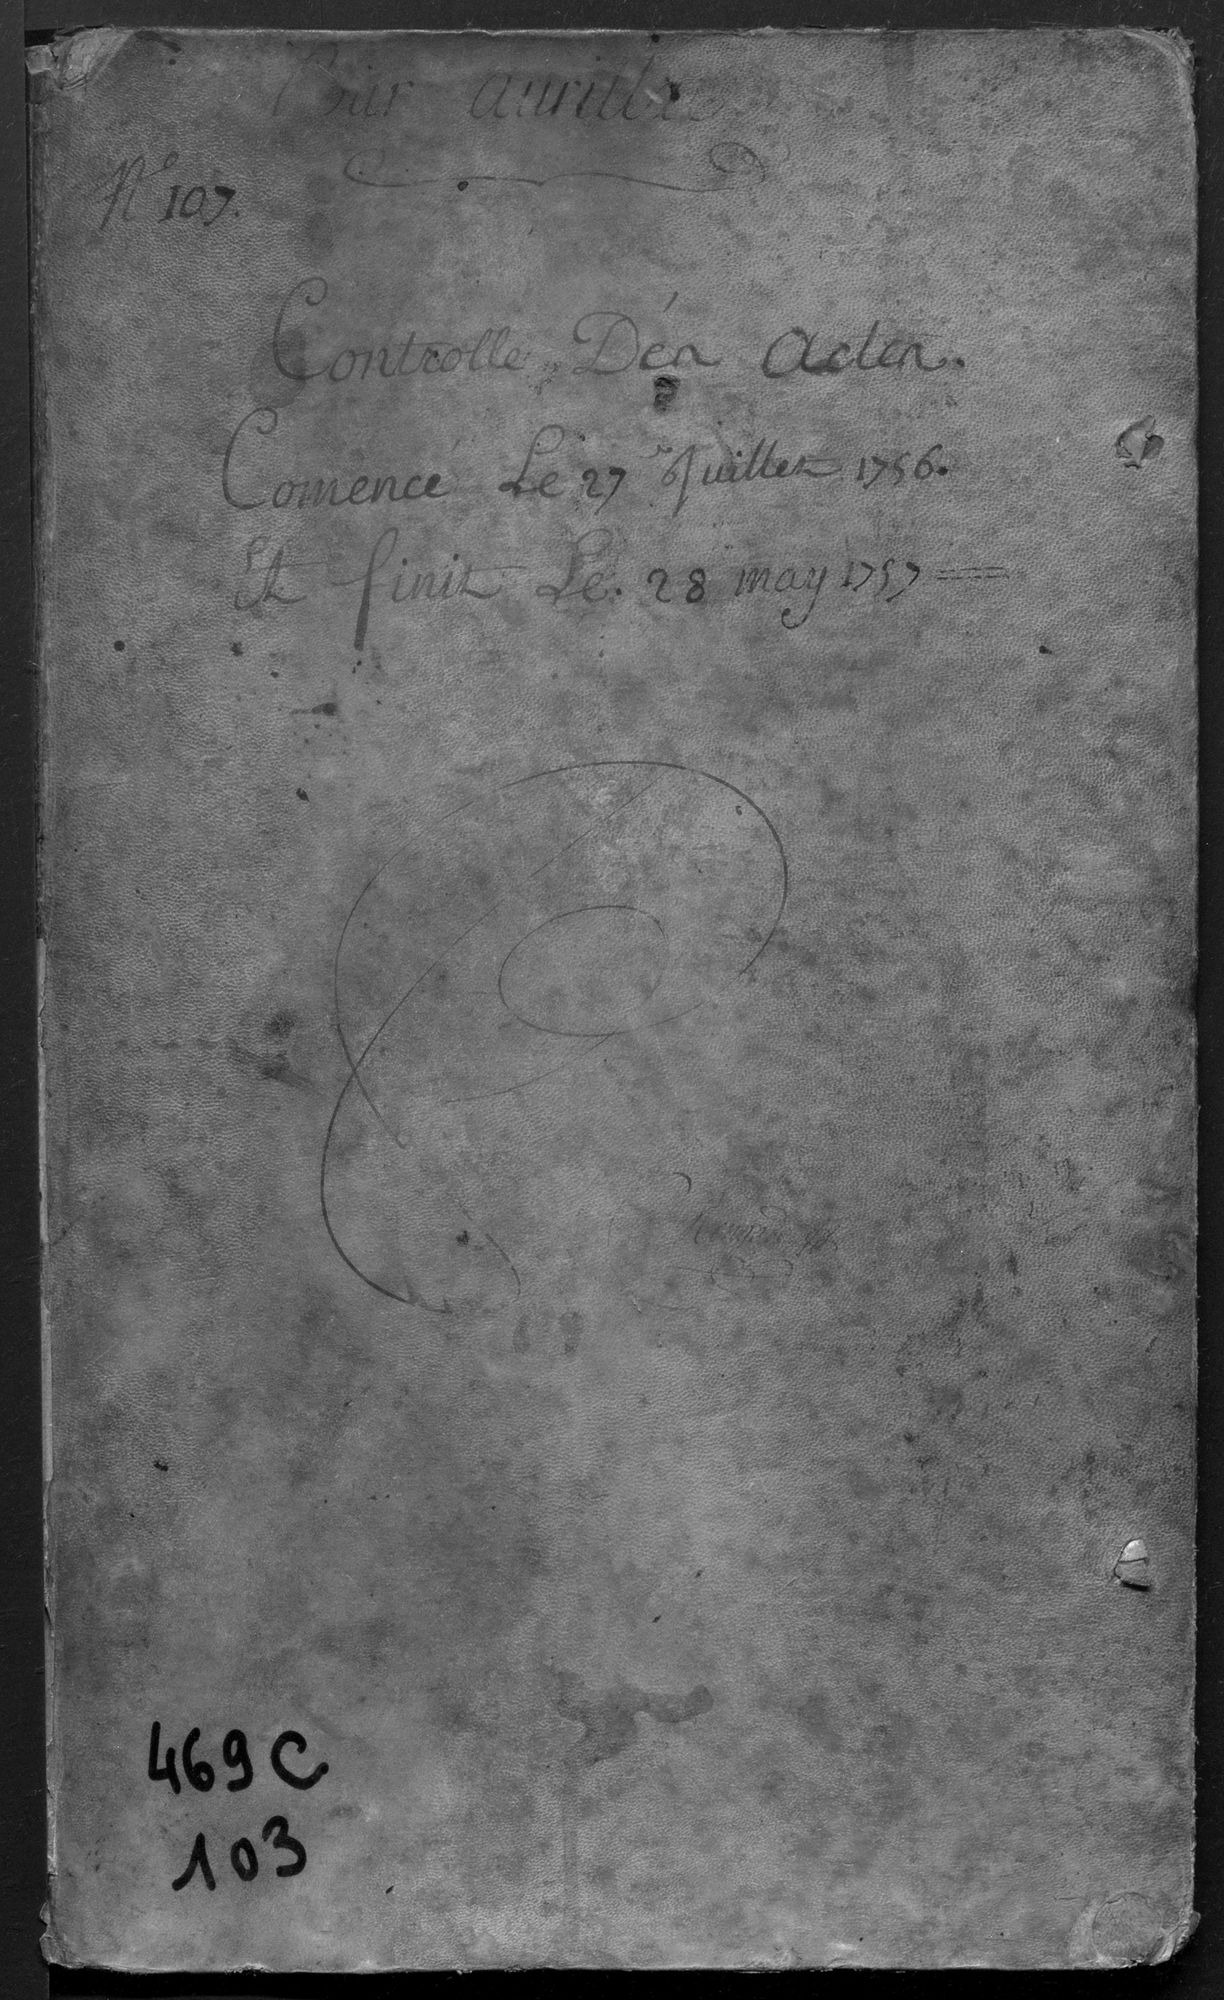 Bur aurillac
N° 107.
Controlle Des Actes.
Comencé Le 27 Juillet 1756.
Et finit Le. 28 may 1757 =
469 C
103